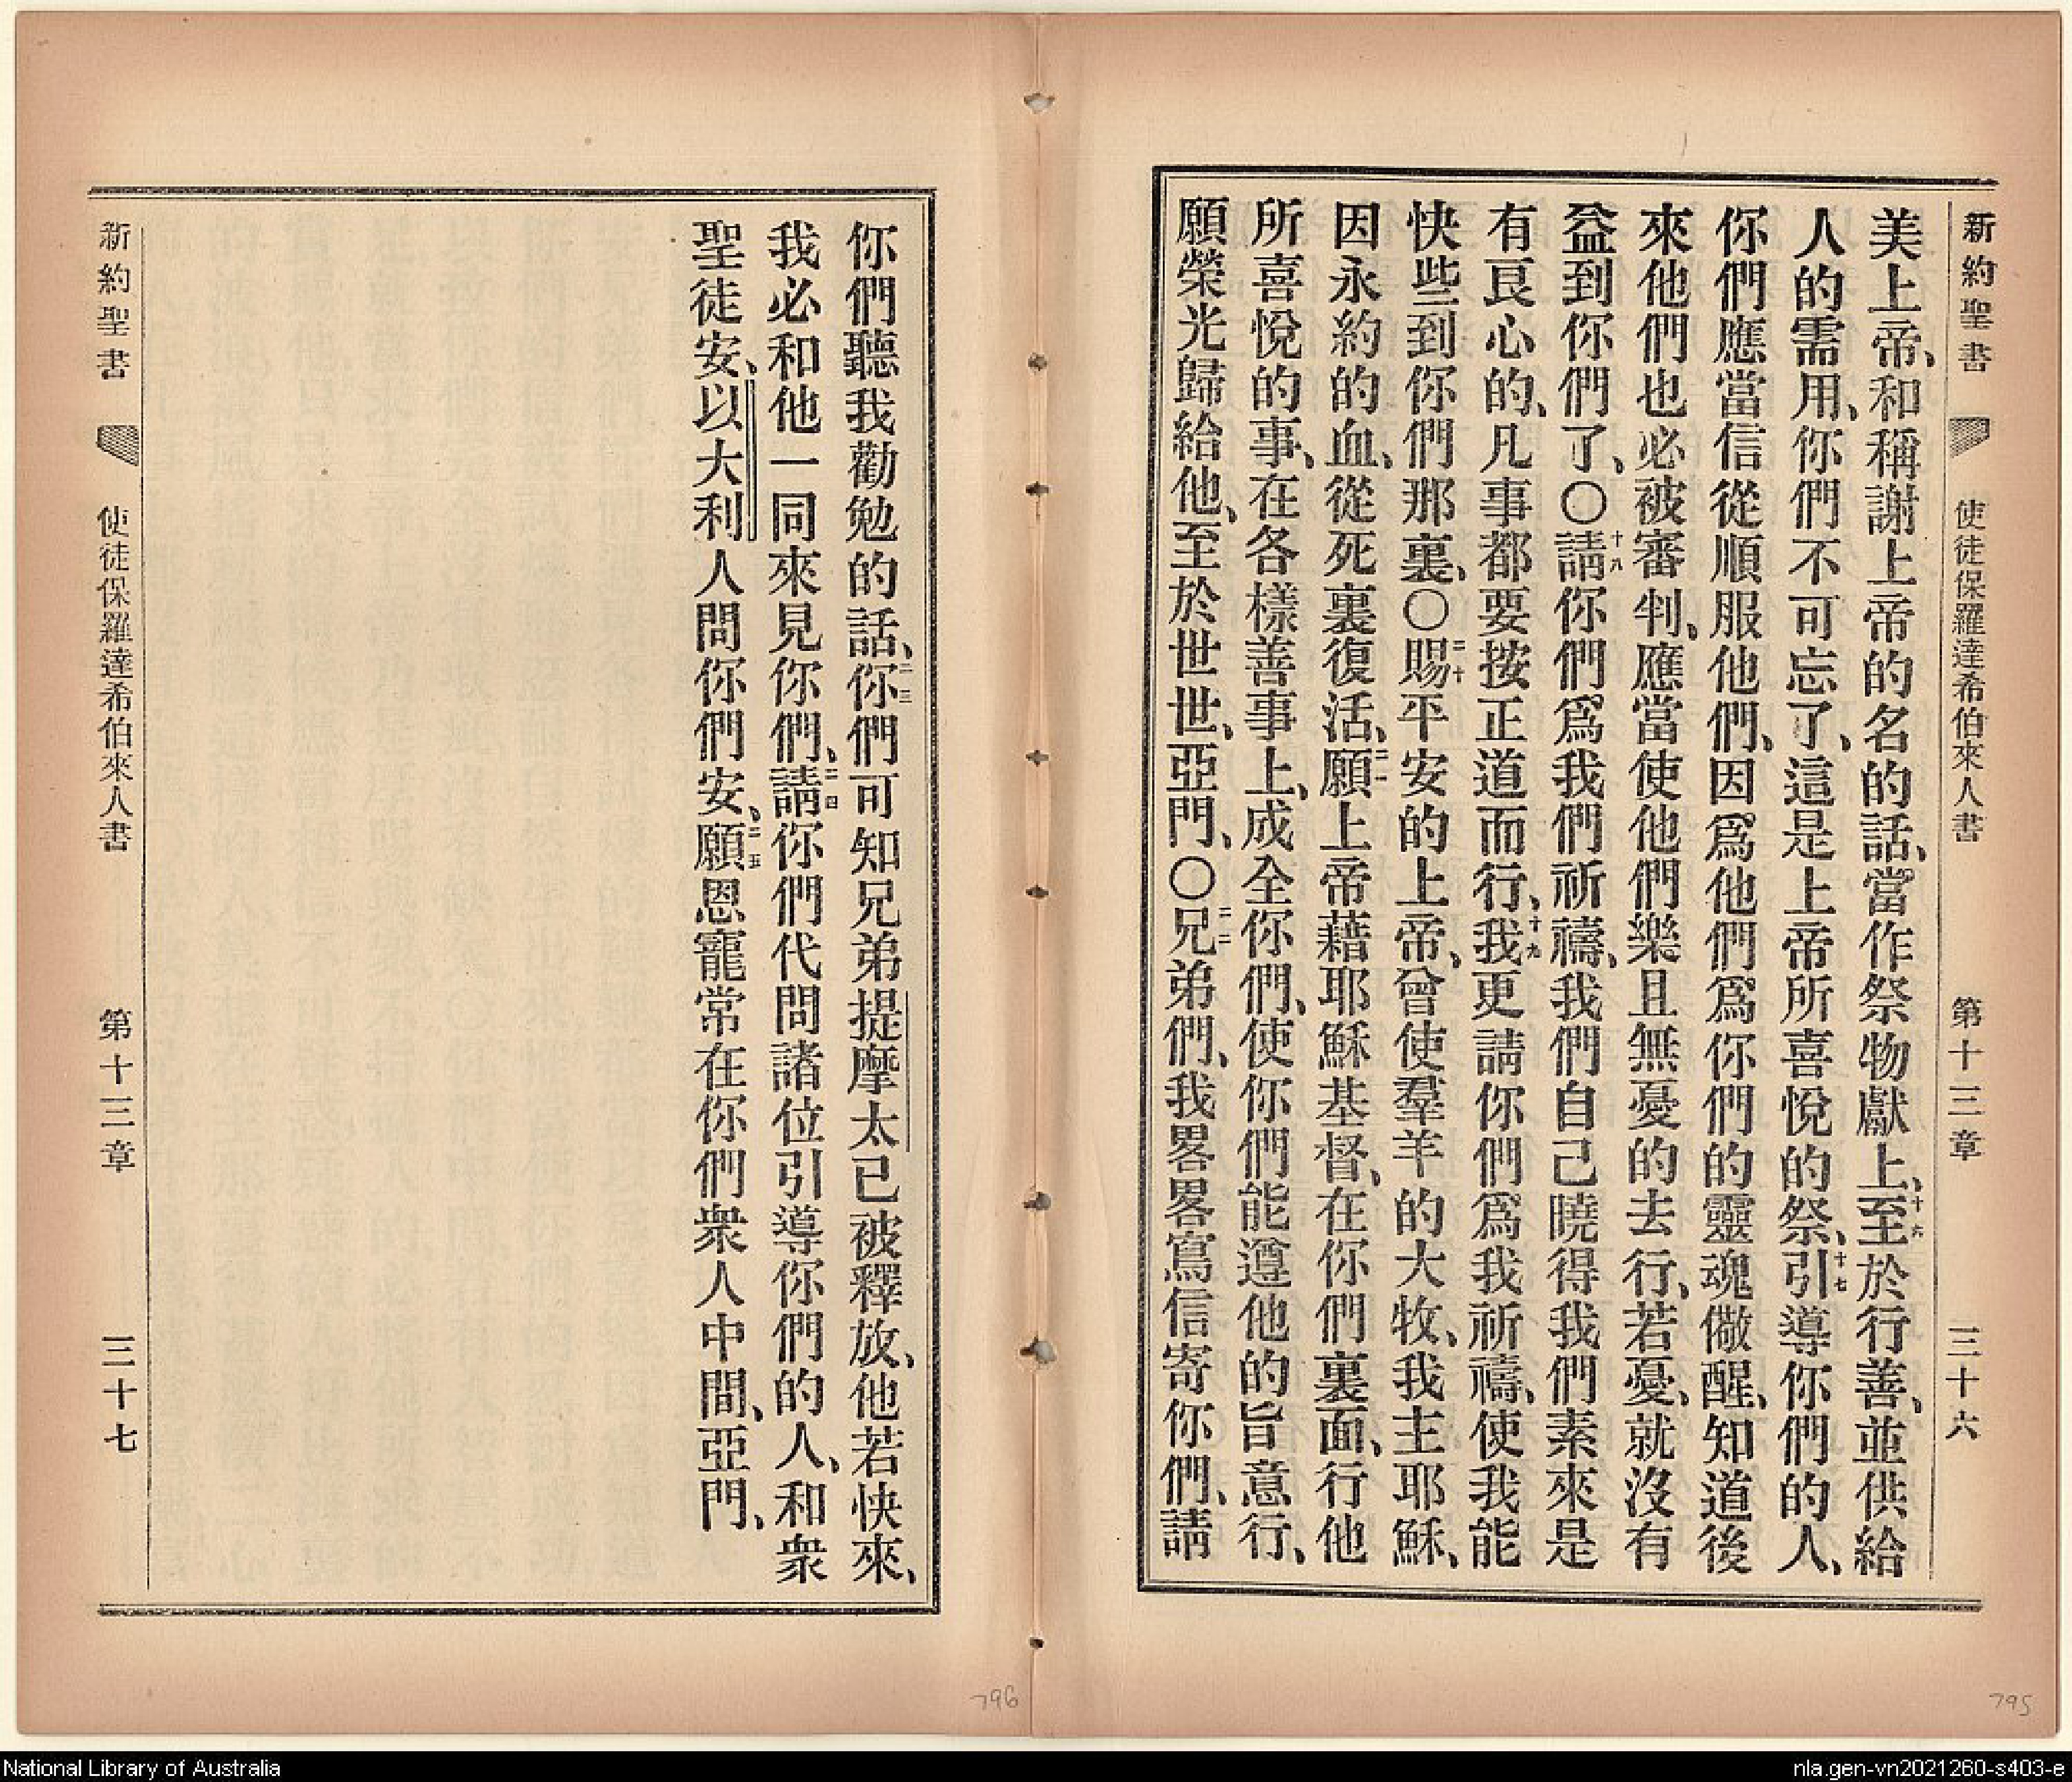 新約聖書 使徒保羅達希伯來人書 第十三章 三十六
美上帝、和稱謝上帝的名的話、當作祭物獻上、十六至於行善、並供給
人的需用、你們不可忘了、這是上帝所喜悅的祭、十七引導你們的人、
你們應當信從順服他們、因爲他們爲你們的靈魂儆醒、知道後
來他們也必被審判、應當使他們樂且無憂的去行、若憂、就沒有
益到你們了、〇十八請你們爲我們祈禱、我們自己曉得我們素來是
有良心的、凡事都要按正道而行、十九我更請你們爲我祈禱、使我能
快些到你們那裏、〇二十賜平安的上帝、曾使羣羊的大牧、我主耶穌、
因永約的血、從死裏復活、二一願上帝藉耶穌基督、在你們裏面、行他
所喜悅的事、在各樣善事上、成全你們、使你們能遵他的旨意行、
願榮光歸給他、至於世世、亞門、〇二二兄弟們、我畧畧寫信寄你們、請
你們聽我勸勉的話、二三你們可知兄弟提摩太已被釋放、他若快來、
我必和他一同來見你們、二四請你們代問諸位引導你們的人、和衆
聖徒安、以大利人問你們安、二五願恩寵常在你們衆人中間、亞門、
新約聖書 使徒保羅達希伯來人書 第十三章 三十七
796
795
National Library of Australia
nla.gen-vn2021260-s403-e